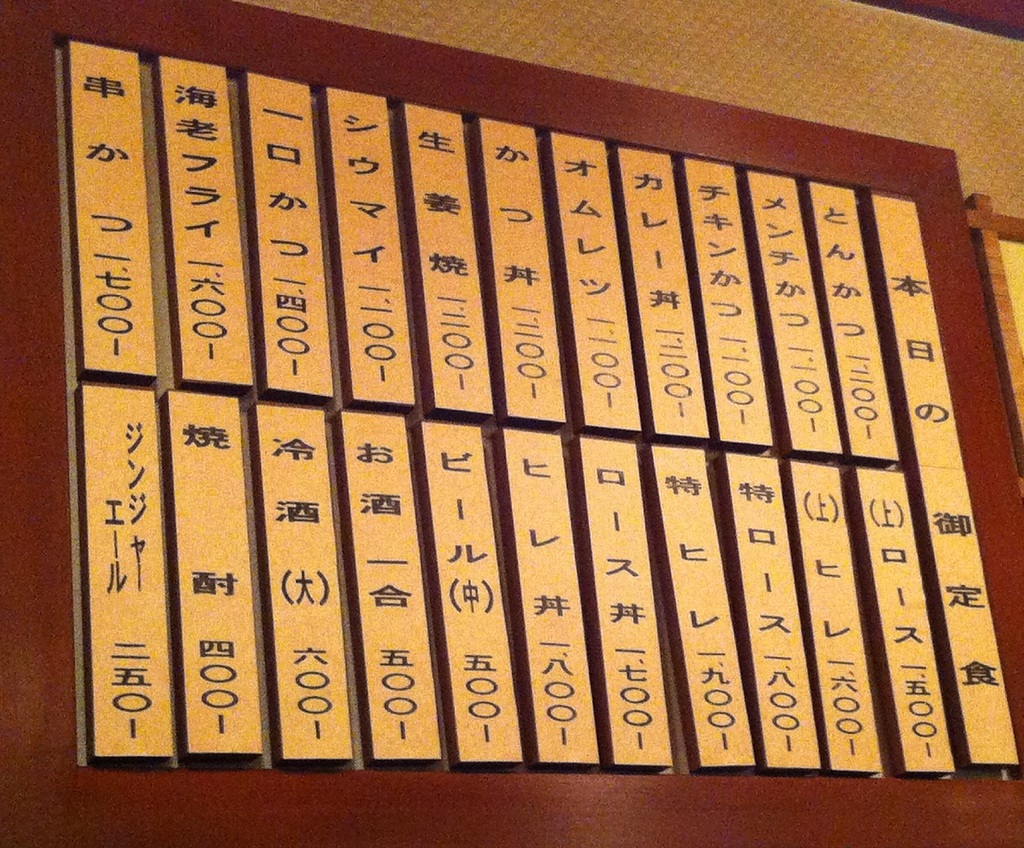 本日の御定食
とんかつ 一、二〇〇ー
メンチかつ 一、一〇〇ー
チキンかつ 一、一〇〇ー
カレー丼 一、二〇〇ー
オムレツ 一、一〇〇ー
かつ丼 一、二〇〇ー
生姜焼 一、二〇〇ー
シウマイ 一、一〇〇ー
一口かつ 一、四〇〇ー
海老フライ 一、六〇〇ー
串かつ 一、七〇〇ー
(上)ロース 一、五〇〇ー
(上)ヒレ 一、六〇〇ー
特ロース 一、八〇〇ー
特ヒレ 一、九〇〇ー
ロース丼 一、七〇〇ー
ヒレ丼 一、八〇〇ー
ビール(中) 五〇〇ー
お酒一合 五〇〇ー
冷酒(大) 六〇〇ー
焼酎 四〇〇ー
ジンジャーエール 二五〇ー